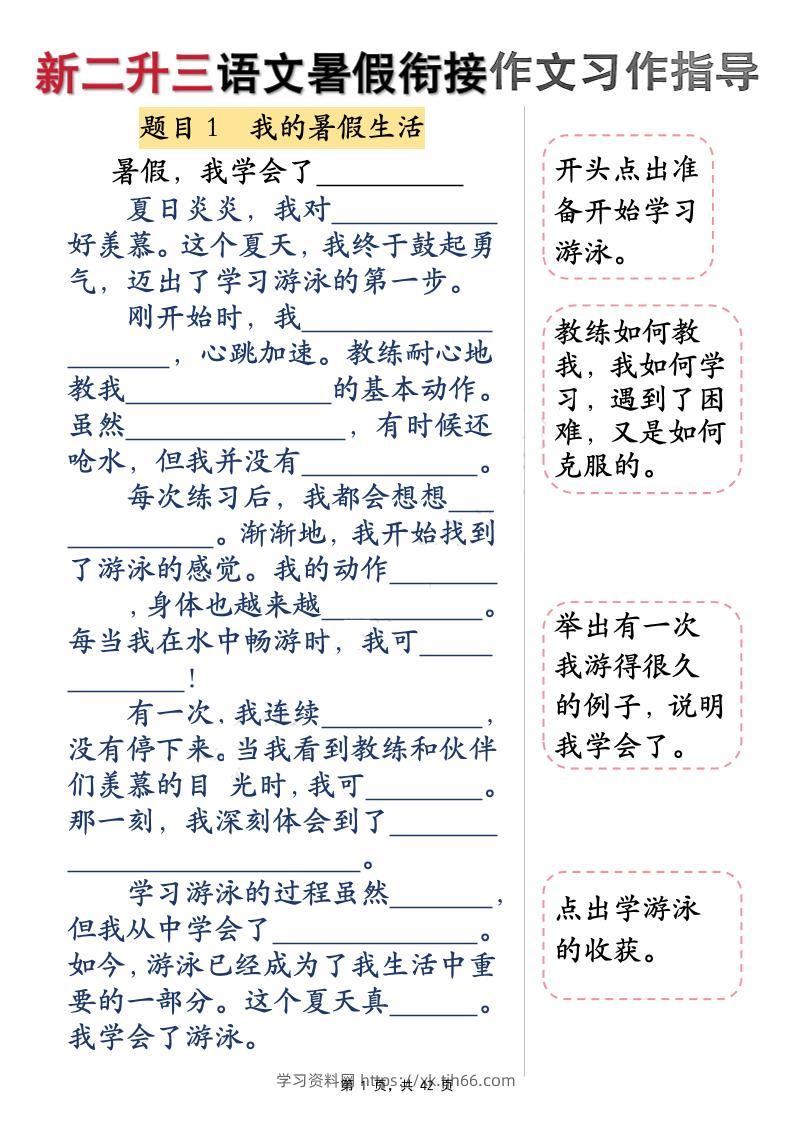 新二升三语文暑假衔接作文习作指导
题目1 我的暑假生活
暑假，我学会了__________
夏日炎炎，我对___________
好羡慕。这个夏天，我终于鼓起勇
气，迈出了学习游泳的第一步。
刚开始时，我_____________
_______，心跳加速。教练耐心地
教我______________的基本动作。
虽然_______________，有时候还
呛水，但我并没有____________。
每次练习后，我都会想想___
__________。渐渐地，我开始找到
了游泳的感觉。我的动作_______
，身体也越来越___________。
每当我在水中畅游时，我可_____
________！
有一次，我连续___________，
没有停下来。当我看到教练和伙伴
们羡慕的目 光时，我可________。
那一刻，我深刻体会到了_______
____________________。
学习游泳的过程虽然_______，
但我从中学会了______________。
如今，游泳已经成为了我生活中重
要的一部分。这个夏天真______。
我学会了游泳。
开头点出准
备开始学习
游泳。
教练如何教
我，我如何学
习，遇到了困
难，又是如何
克服的。
举出有一次
我游得很久
的例子，说明
我学会了。
点出学游泳
的收获。
学习资料网 https://xk.tjh66.com
第 1 页，共 42 页